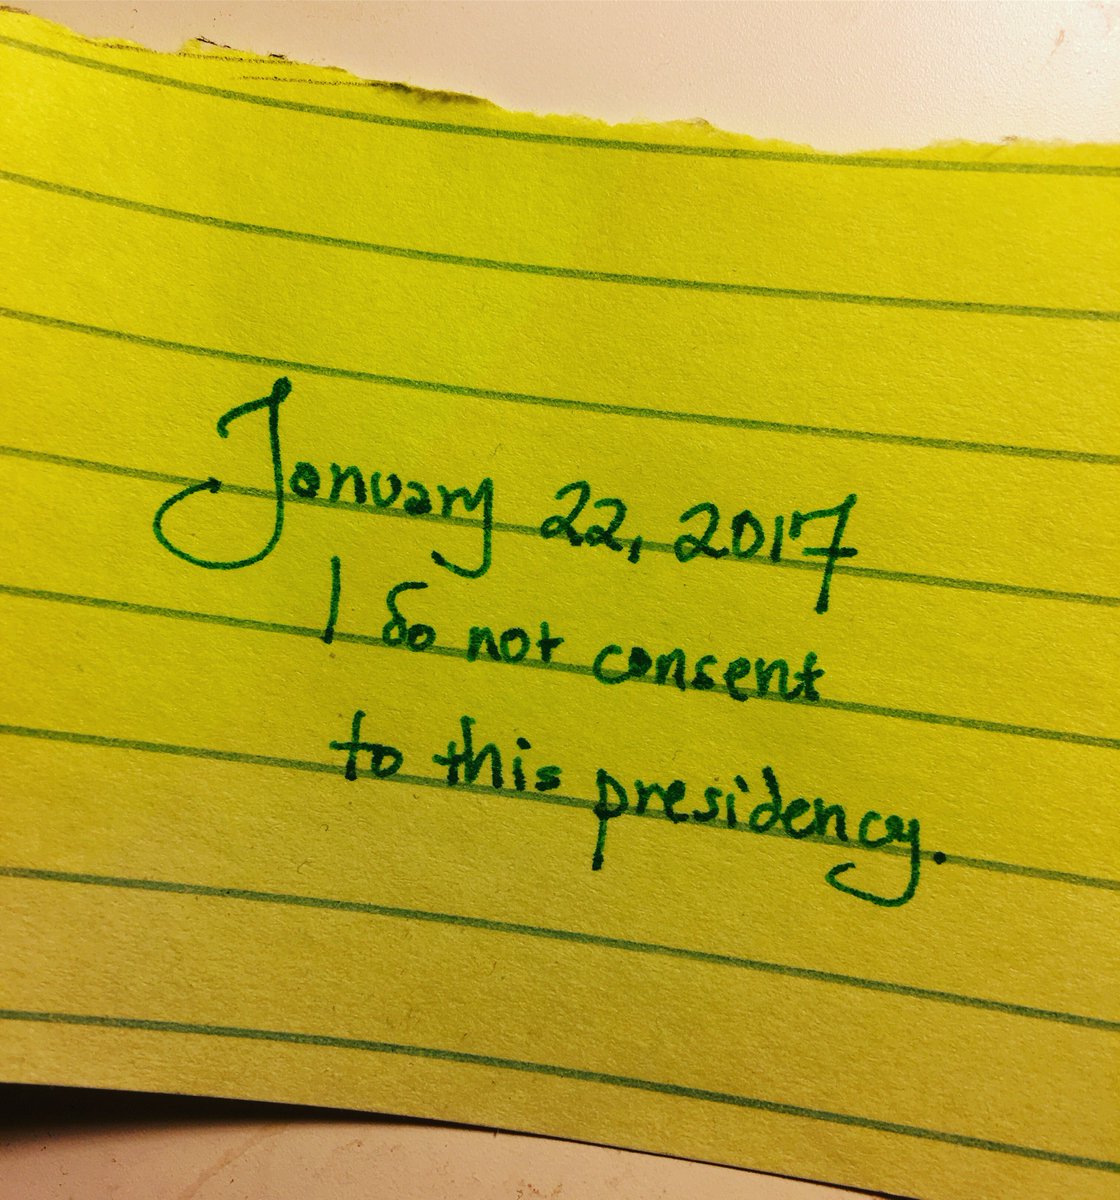 January 22, 2017
I do not consent
to this presidency.